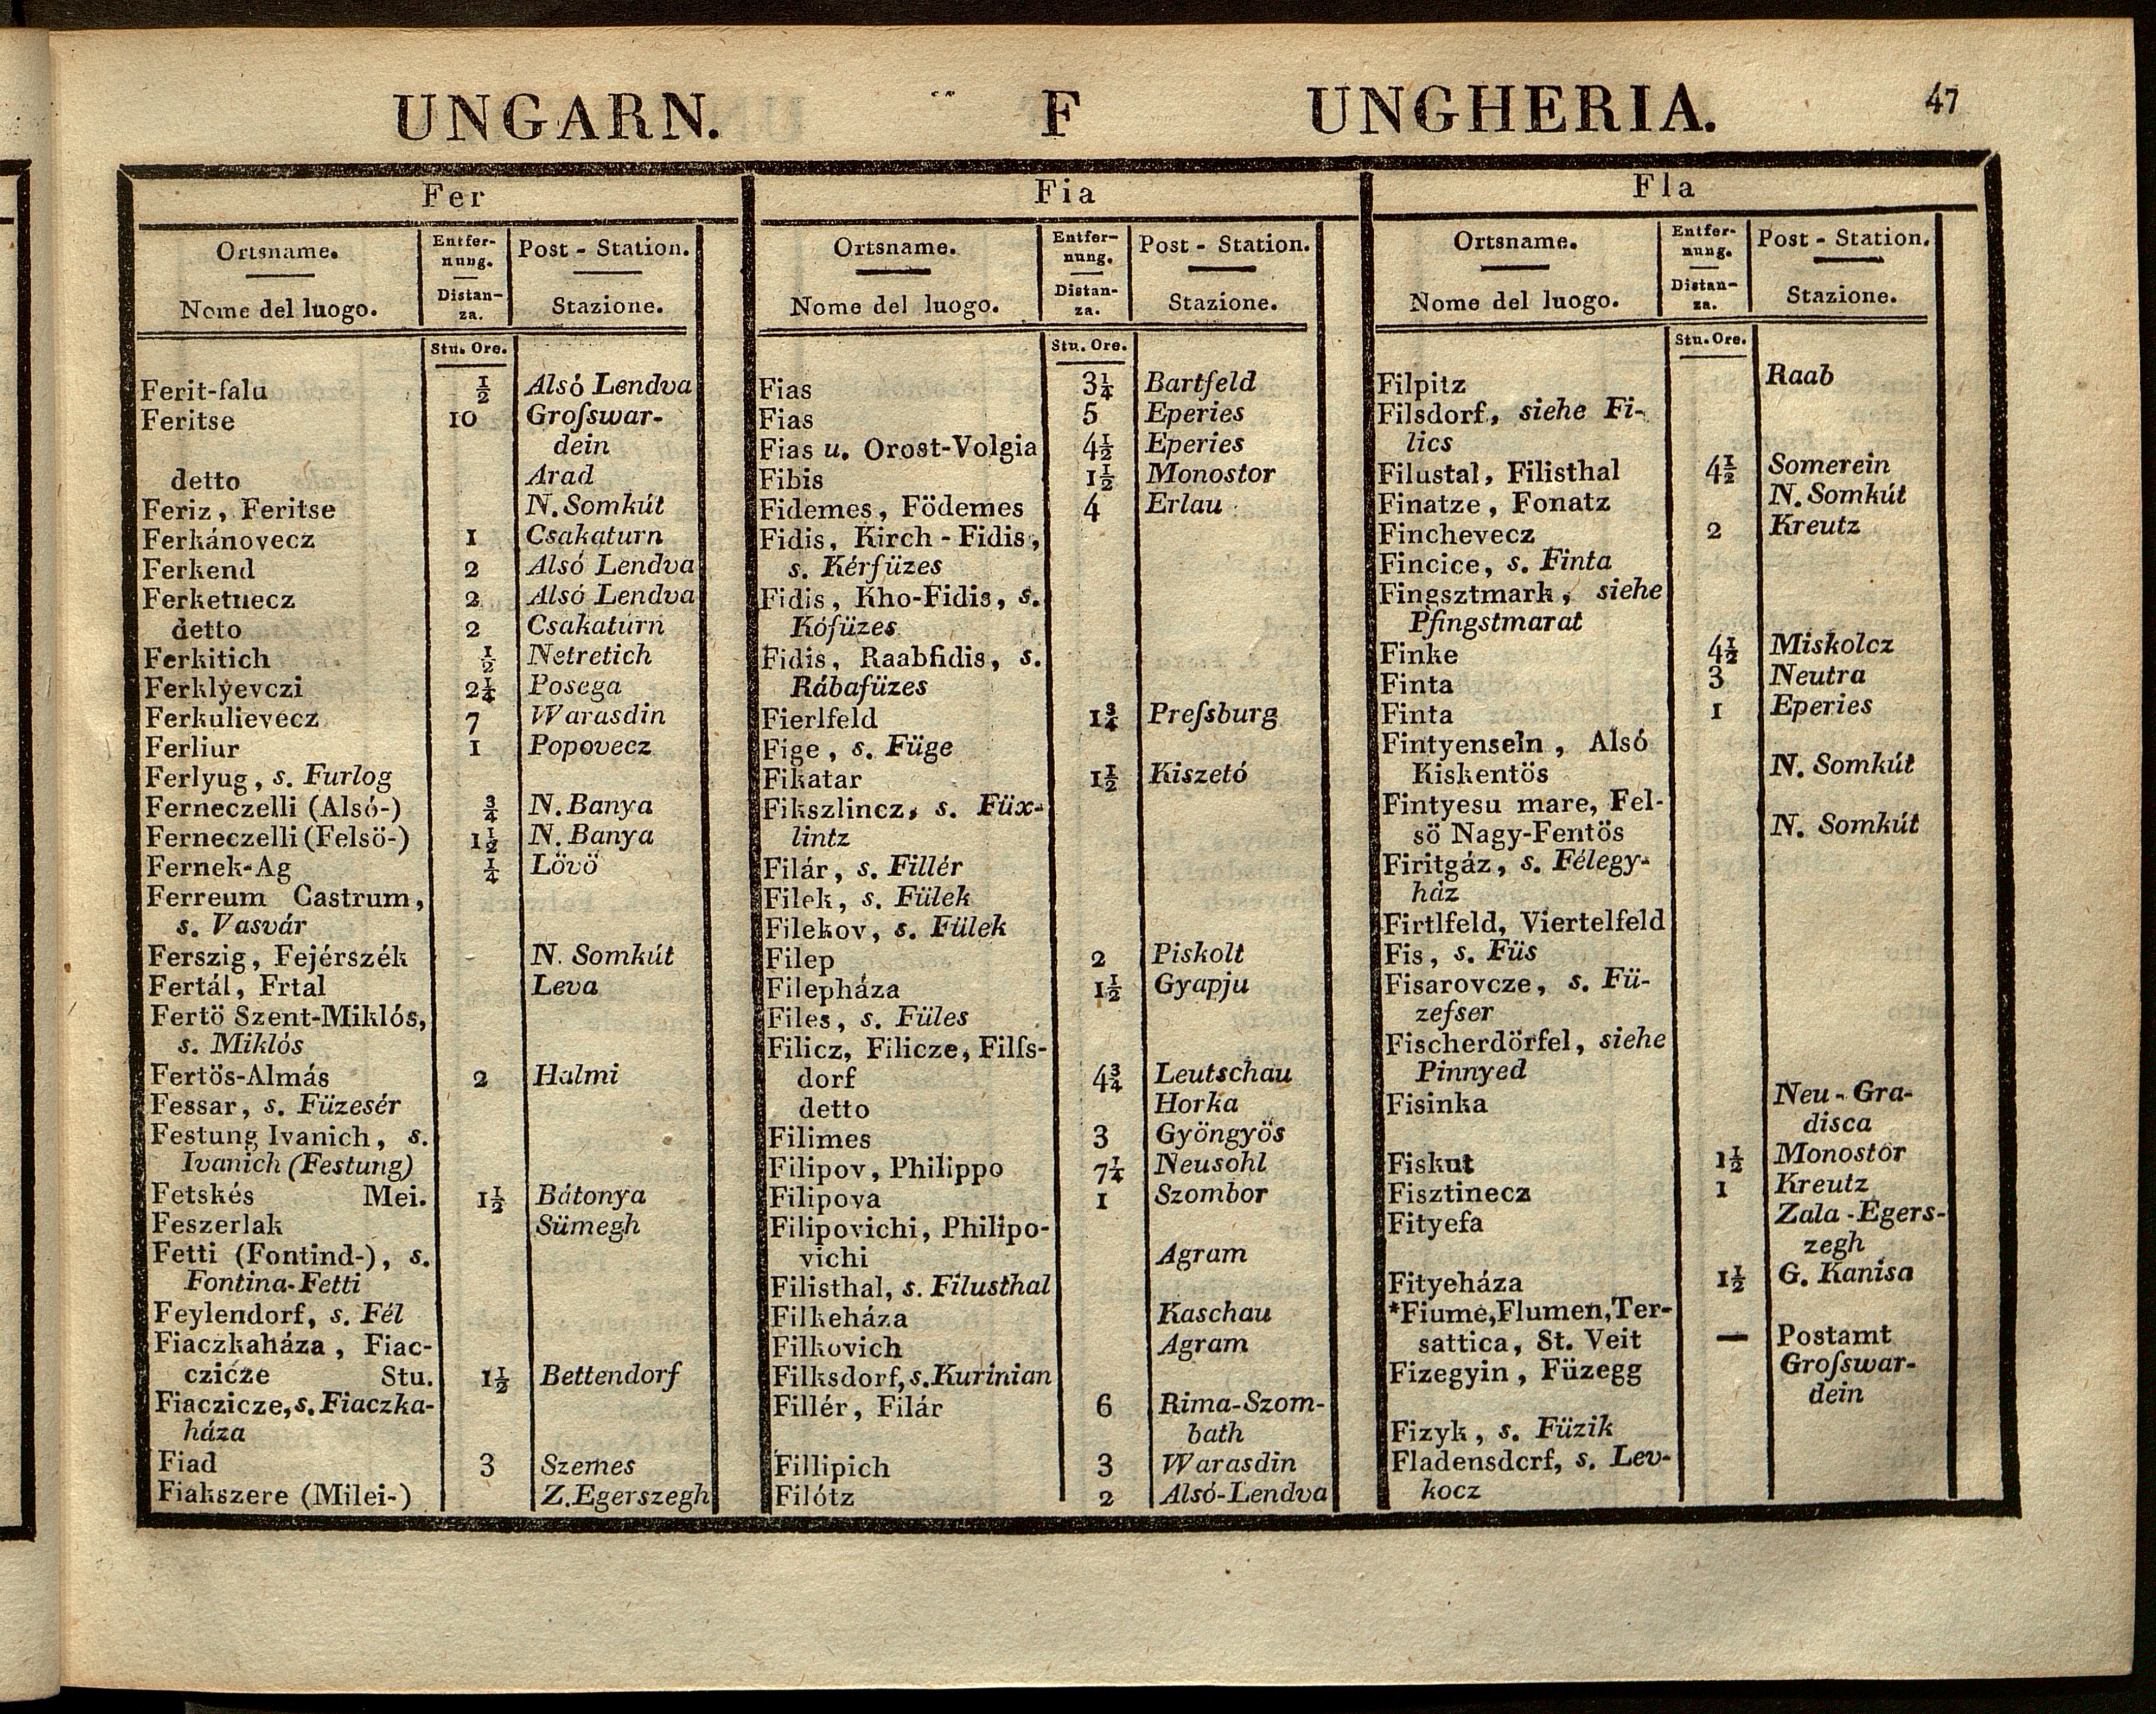 UNGARN. F UNGHERIA. 47
Fer
Ortsname. Entfer- Post - Station.
nung.
Nome del luogo. Distan- Stazione.
za.
Stu. Ore.
Ferit-falu ½ Alsó Lendva
Feritse 10 Groſswar-
dein
detto Arad
Feriz, Feritse N. Somkút
Ferkánovecz 1 Csakaturn
Ferkend 2 Alsó Lendva
Ferketuecz 2 Alsó Lendva
detto 2 Csakaturn
Ferkitich ½ Netretich
Ferklyevczi 2¼ Posega
Ferkulievecz 7 Warasdin
Ferliur 1 Popovecz
Ferlyug, s. Furlog
Ferneczelli (Alsó-) ¾ N. Banya
Ferneczelli (Felsö-) 1½ N. Banya
Fernek-Ag ¼ Lövö
Ferreum Castrum,
s. Vasvár
Ferszig, Fejérszék N. Somkút
Fertál, Frtal Leva
Fertö Szent-Miklós,
s. Miklós
Fertös-Almás 2 Halmi
Fessar, s. Füzesér
Festung Ivanich, s.
Ivanich (Festung)
Fetskés Mei. 1½ Bátonya
Feszerlak Sümegh
Fetti (Fontind-), s.
Fontina-Fetti
Feylendorf, s. Fél
Fiaczkaháza, Fiac-
czicze Stu. 1½ Bettendorf
Fiaczicze, s. Fiaczka-
háza
Fiad 3 Szemes
Fiakszere (Milei-) Z. Egerszegh
Fia
Ortsname. Entfer- Post - Station.
nung.
Nome del luogo. Distan- Stazione.
za.
Stu. Ore.
Fias 3¼ Bartfeld
Fias 5 Eperies
Fias u. Orost-Volgia 4½ Eperies
Fibis 1½ Monostor
Fidemes, Födemes 4 Erlau
Fidis, Kirch - Fidis,
s. Kérfüzes
Fidis, Kho-Fidis, s.
Kófüzes
Fidis, Raabfidis, s.
Rábafüzes
Fierlfeld 1¾ Preſsburg
Fige, s. Füge
Fikatar 1½ Kiszetó
Fikszlincz, s. Füx-
lintz
Filár, s. Fillér
Filek, s. Fülek
Filekov, s. Fülek
Filep 2 Piskolt
Filepháza 1½ Gyapju
Files, s. Füles
Filicz, Filicze, Filſs-
dorf 4¾ Leutschau
detto Horka
Filimes 3 Gyöngyös
Filipov, Philippo 7¼ Neusohl
Filipova 1 Szombor
Filipovichi, Philipo-
vichi Agram
Filisthal, s. Filusthal
Filkeháza Kaschau
Filkovich Agram
Filksdorf, s. Kurinian
Fillér, Filár 6 Rima-Szom-
bath
Fillipich 3 Warasdin
Filótz 2 Alsó-Lendva
Fla
Ortsname. Entfer- Post - Station.
nung.
Nome del luogo. Distan- Stazione.
za.
Stu. Ore.
Filpitz Raab
Filsdorf, siehe Fi-
lics
Filustal, Filisthal 4½ Somerein
Finatze, Fonatz N. Somkút
Finchevecz 2 Kreutz
Fincice, s. Finta
Fingsztmark, siehe
Pfingstmarat
Finke 4½ Miskolcz
Finta 3 Neutra
Finta 1 Eperies
Fintyenseln, Alsó
Kiskentös N. Somkút
Fintyesu mare, Fel-
sö Nagy-Fentös N. Somkút
Firitgáz, s. Félegy-
ház
Firtlfeld, Viertelfeld
Fis, s. Füs
Fisarovcze, s. Fü-
zefser
Fischerdörfel, siehe
Pinnyed
Fisinka Neu - Gra-
disca
Fiskut 1½ Monostor
Fisztinecz 1 Kreutz
Fityefa Zala - Egers-
zegh
Fityeháza 1½ G. Kanisa
*Fiume, Flumen, Ter-
sattica, St. Veit — Postamt
Fizegyin, Füzegg Groſswar-
dein
Fizyk, s. Füzik
Fladensdorf, s. Lev-
kocz